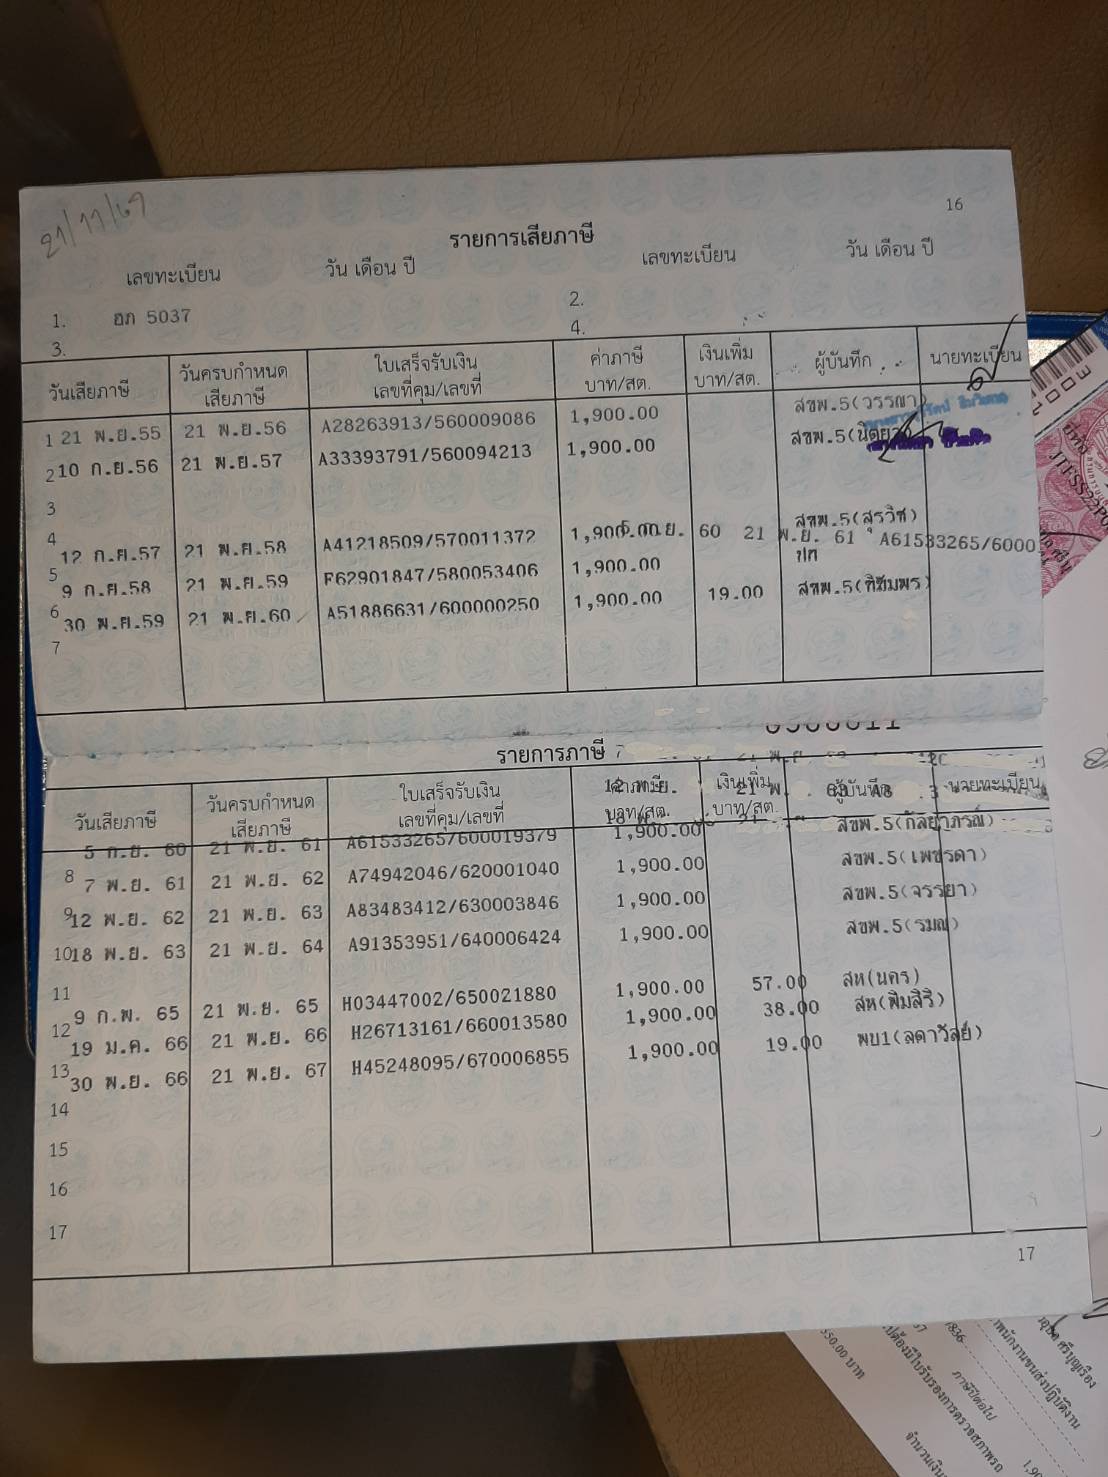 21/11/67
16
รายการเสียภาษี
เลขทะเบียน วัน เดือน ปี เลขทะเบียน วัน เดือน ปี
1. ฮภ 5037 2.
3. 4.
วันเสียภาษี วันครบกำหนดเสียภาษี ใบเสร็จรับเงิน เลขที่คุม/เลขที่ ค่าภาษี บาท/สต. เงินเพิ่ม บาท/สต. ผู้บันทึก นายทะเบียน
1 21 พ.ย.55 21 พ.ย.56 A28263913/560009086 1,900.00 สขพ.5(วรรณา)
2 10 ก.ย.56 21 พ.ย.57 A33393791/560094213 1,900.00 สขพ.5
3
4 12 ก.ย.57 21 พ.ย.58 A41218509/570011372 1,900.00 สขพ.5(สุรวิช)
5 ก.ย. 60 21 พ.ย. 61 A61533265/6000
5 9 ก.ย.58 21 พ.ย.59 F62901847/580053406 1,900.00
6 30 พ.ย.59 21 พ.ย.60 A51886631/600000250 1,900.00 19.00 สขพ.5(ทิฆัมพร)
7
รายการภาษี
วันเสียภาษี วันครบกำหนดเสียภาษี ใบเสร็จรับเงิน เลขที่คุม/เลขที่ ค่าภาษี บาท/สต. เงินเพิ่ม บาท/สต. ผู้บันทึก นายทะเบียน
5 ก.ย. 60 21 พ.ย. 61 A61533265/600019379 1,900.00 สขพ.5(กัลยาภรณ์)
8 7 พ.ย. 61 21 พ.ย. 62 A74942046/620001040 1,900.00 สขพ.5(เพชรดา)
9 12 พ.ย. 62 21 พ.ย. 63 A83483412/630003846 1,900.00 สขพ.5(จรรยา)
10 18 พ.ย. 63 21 พ.ย. 64 A91353951/640006424 1,900.00 สขพ.5(รมณ)
11
9 ก.พ. 65 21 พ.ย. 65 H03447002/650021880 1,900.00 57.00 สห(นคร)
12 19 ม.ค. 66 21 พ.ย. 66 H26713161/660013580 1,900.00 38.00 สห(พิมสิริ)
13 30 พ.ย. 66 21 พ.ย. 67 H45248095/670006855 1,900.00 19.00 พบ1(ลดาวัลย์)
14
15
16
17
17
ภาษีปีต่อไป
จำนวนเงิน